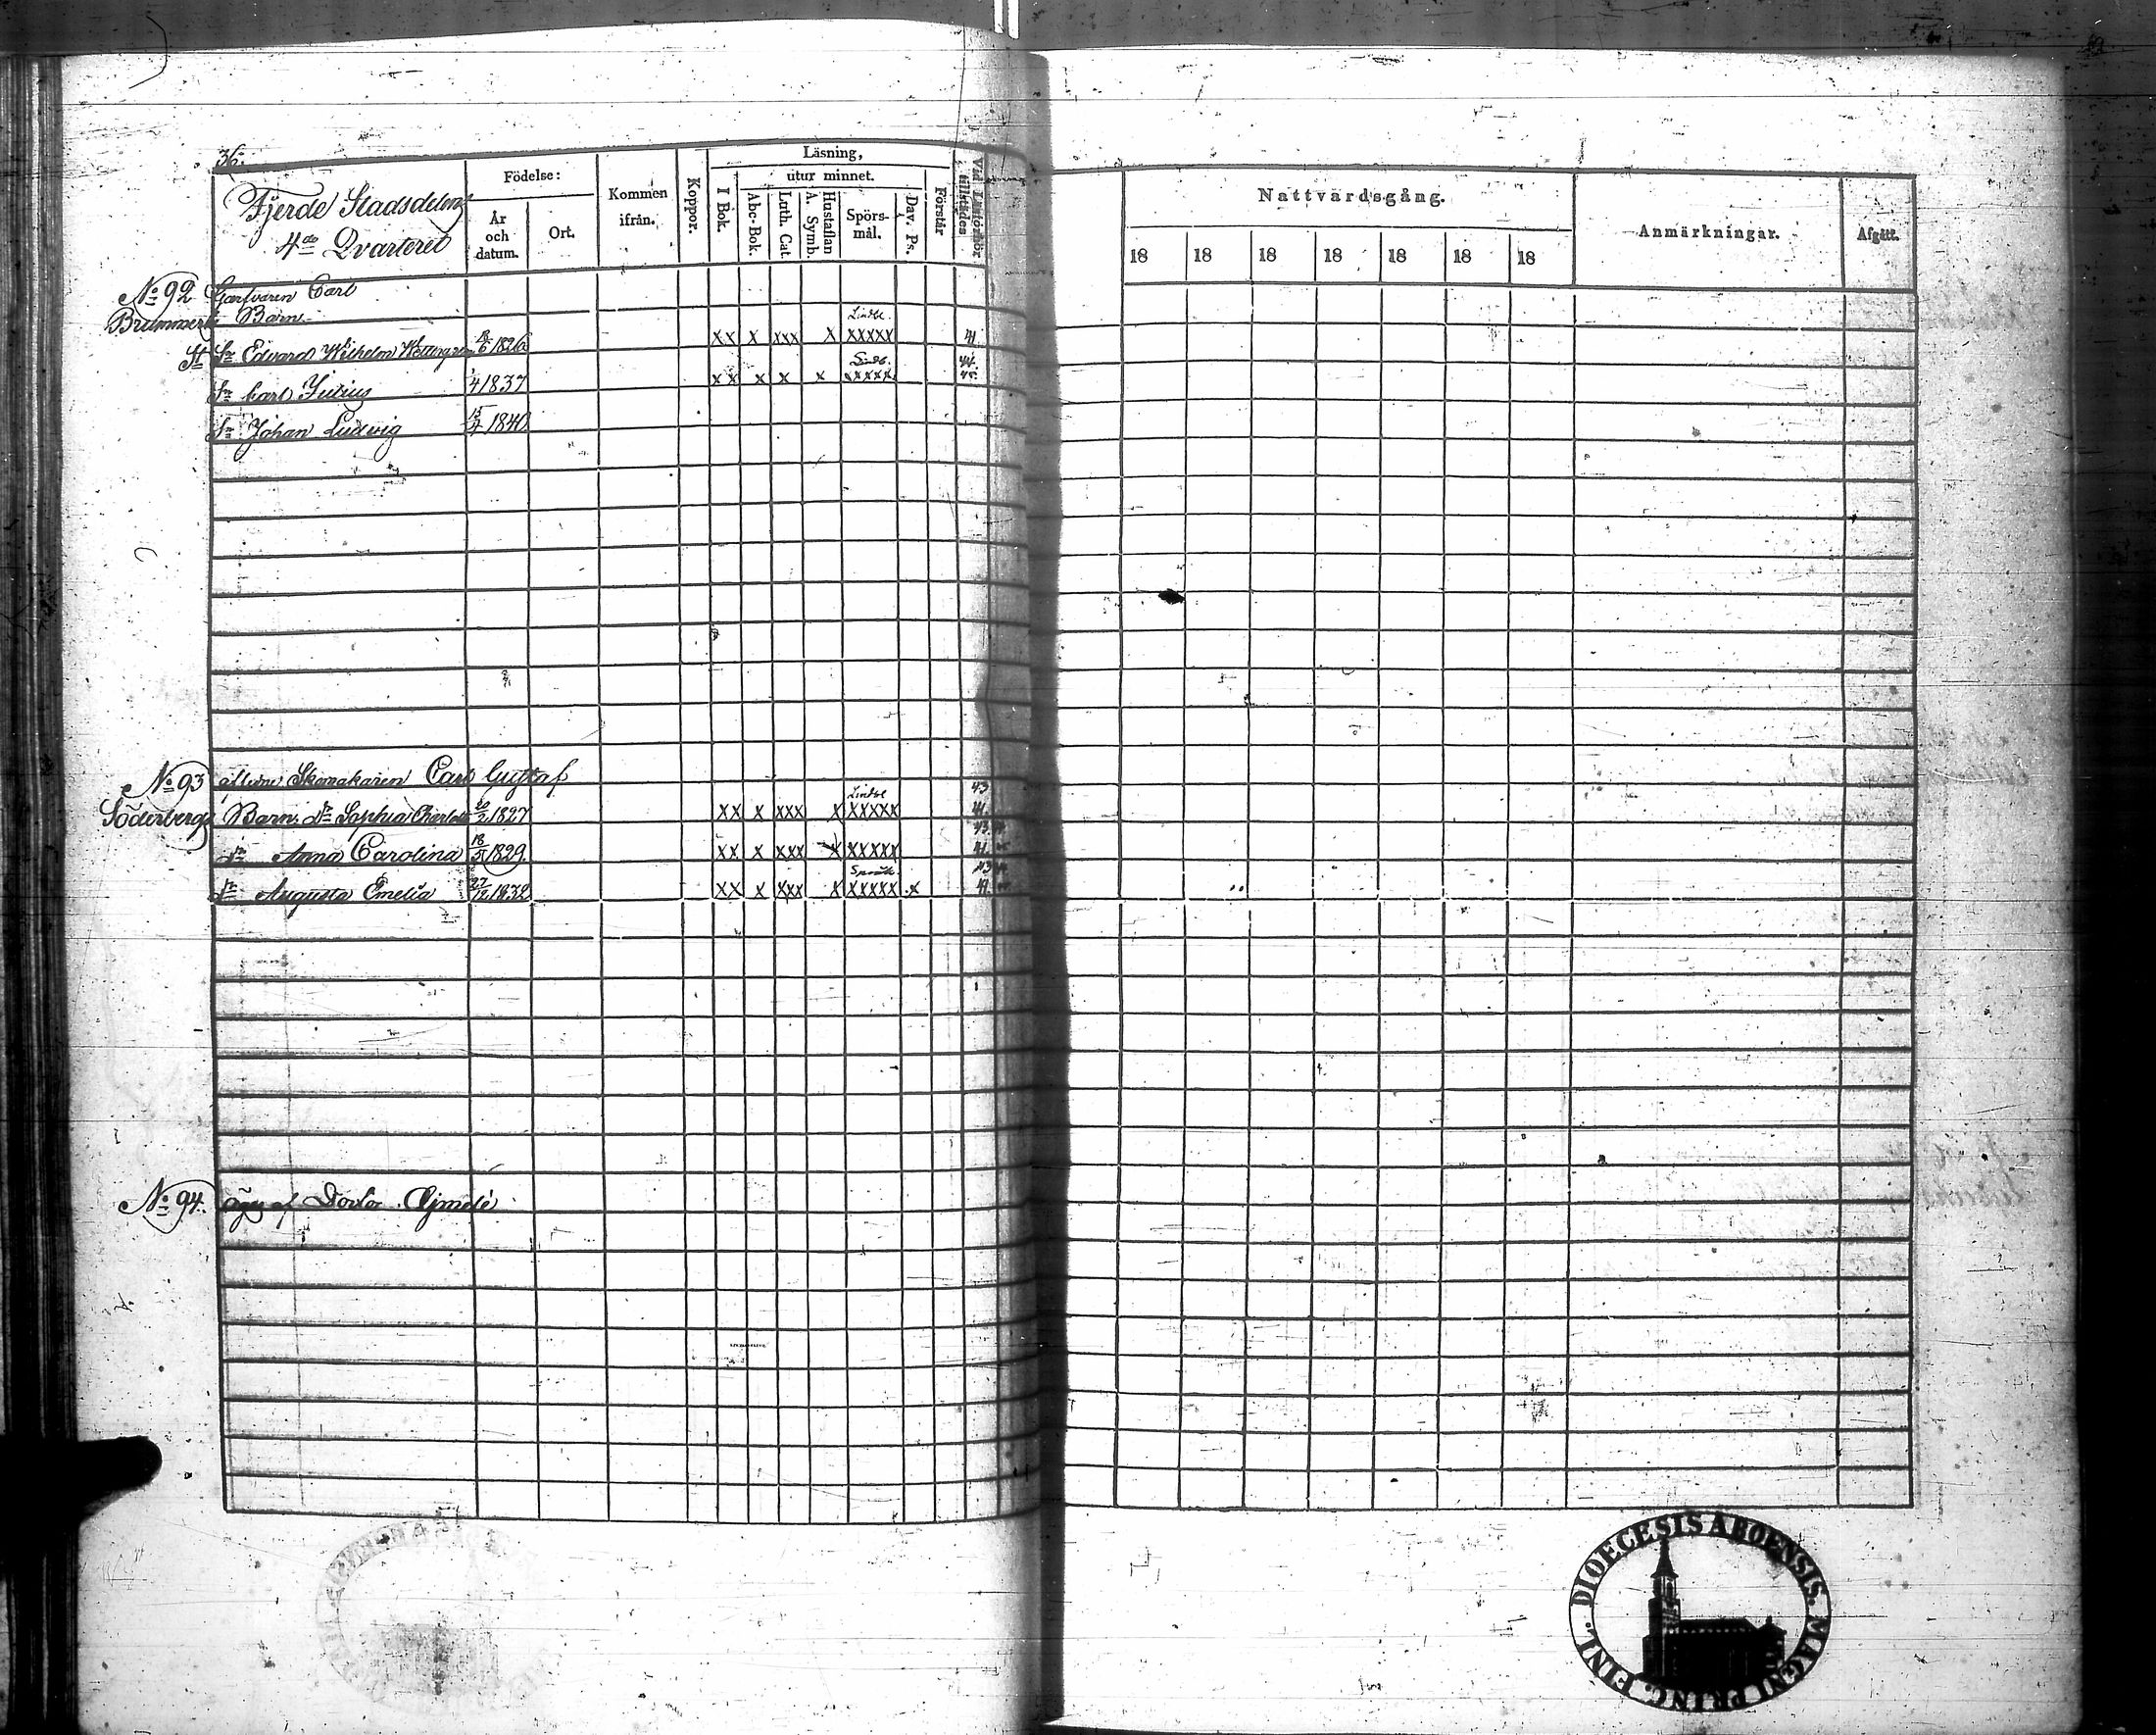 36.
Fjerde Stadsdelens
4de Qvarteret
Födelse:
År och datum.
Ort.
Kommen ifrån.
Koppor.
Läsning,
utur minnet.
I Bok.
Abc-Bok.
Luth. Cat.
Hustaflan
A. Symb.
Spörs-mål.
Dav. Ps.
Förstår
Vid Läsförhör tillstädes
Nattvardsgång.
18 18 18 18 18 18 18
Anmärkningar.
Afgått.
No 92 Garfvaren Carl
Brummers Barn
Lindbl.
St Sn Edvard Wilhelm 18/6 1826 xx x xxx x xxxxx 41
44
Sn Carl Julius /4 1837 xx x x x xxxxx 45
Sn Johan Ludvig 1840
No 93 Skomakaren Carl Gustaf
Lindbl 43
Söderbergs Barn. Dr Sophia Charlotta 20/2 1827 xx x xxx x xxxxx 41
43
Dr Anna Carolina 18/5 1829 xx x xxx x xxxxx 41
43
Dr Augusta Emelia 27/12 1832 xx x xxx x xxxxx x 41
No 94. äges af
DIOECESIS ABOENSIS. MAGNI PRINC. FINL.